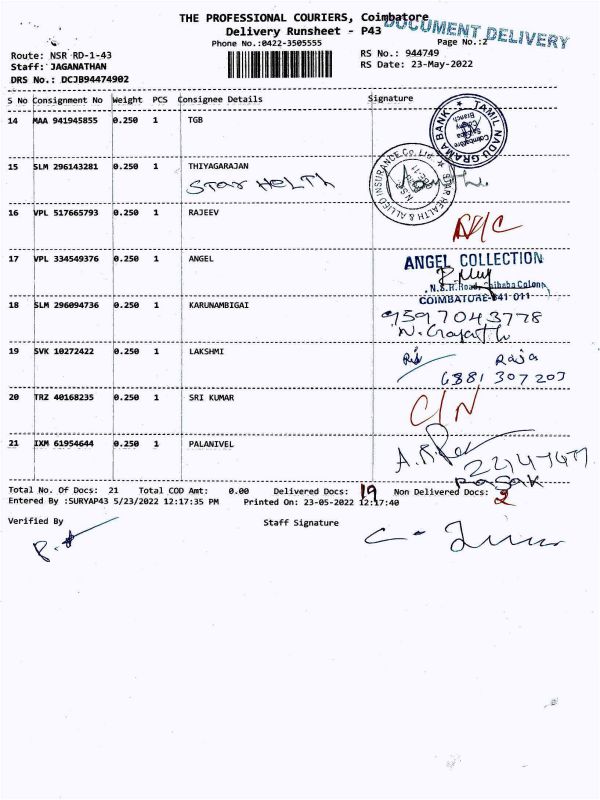 THE PROFESSIONAL COURIERS, Coimbatore
DOCUMENT DELIVERY
Delivery Runsheet - P43
Phone No.:0422-3505555
Page No.:2
Route: NSR RD-1-43
RS No.: 944749
Staff: JAGANATHAN
RS Date: 23-May-2022
DRS No.: DCJB94474902
S No Consignment No Weight PCS Consignee Details Signature
14 MAA 941945855 0.250 1 TGB
TAMIL NADU GRAMA BANK
15 SLM 296143281 0.250 1 THIYAGARAJAN
STAR HELTH
STAR HEALTH & ALLIED INSURANCE Co. Ltd
16 VPL 517665793 0.250 1 RAJEEV
17 VPL 334549376 0.250 1 ANGEL
ANGEL COLLECTION
N.S.R. Road, Saibaba Colony
COIMBATORE-641 011
18 SLM 296094736 0.250 1 KARUNAMBIGAI
9597043778
19 SVK 10272422 0.250 1 LAKSHMI
Raja
6881 307203
20 TRZ 40168235 0.250 1 SRI KUMAR
C/N
21 IXM 61954644 0.250 1 PALANIVEL
Total No. Of Docs: 21 Total COD Amt: 0.00 Delivered Docs: 19 Non Delivered Docs: 2
Entered By :SURYAP43 5/23/2022 12:17:35 PM Printed On: 23-05-2022 12:17:40
Verified By Staff Signature